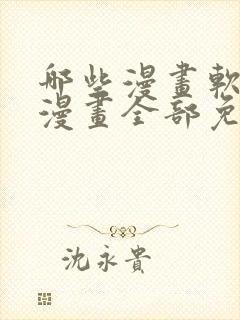 哪些漫畫軟
漫畫全部免
沈永貴